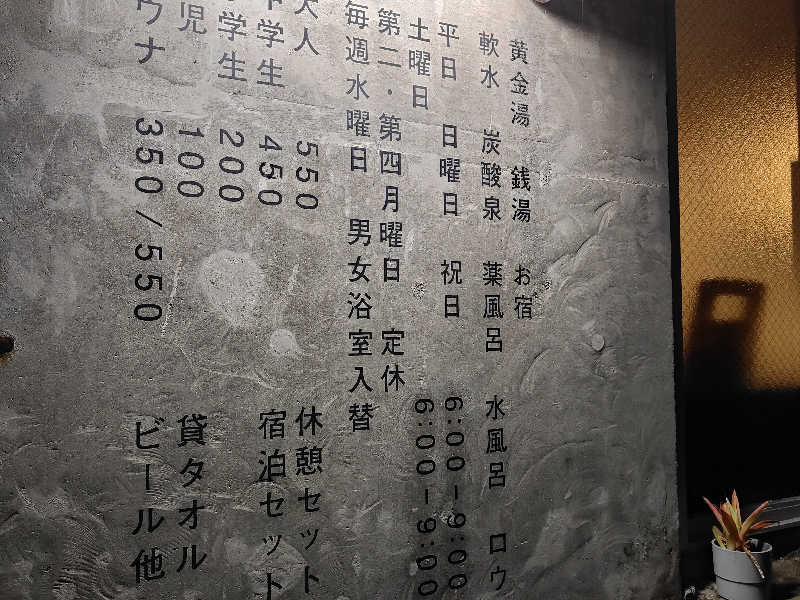 黄金湯 銭湯 お宿
軟水 炭酸泉 薬風呂 水風呂 ロウ
平日 日曜日 祝日 6:00-9:00
土曜日 6:00-9:00
第二・第四月曜日 定休
毎週水曜日 男女浴室入替
大人 550 休憩セット
中学生 450 宿泊セット
学生 200
児 100 貸タオル
ウナ 350/550 ビール他